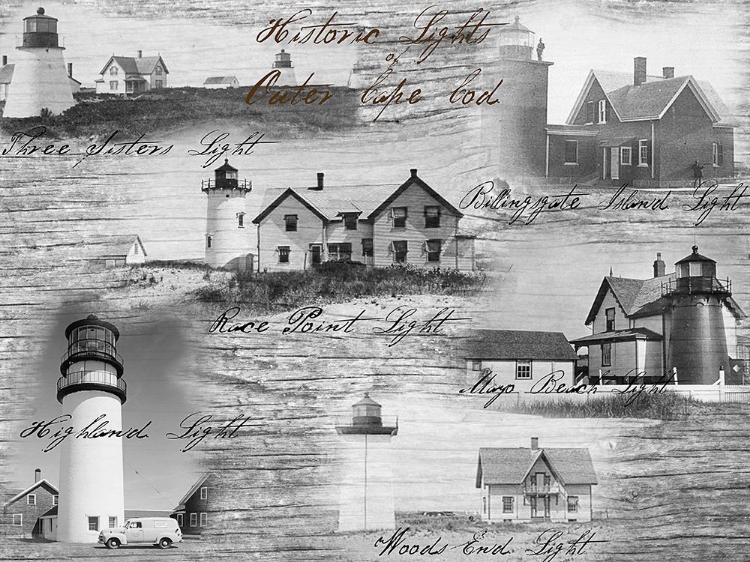 Historic Lights
of
Outer Cape Cod
Three Sisters Light
Bilingsgate Island Light
Race Point Light
Mayo Beach Light
Highland Light
Woods End Light